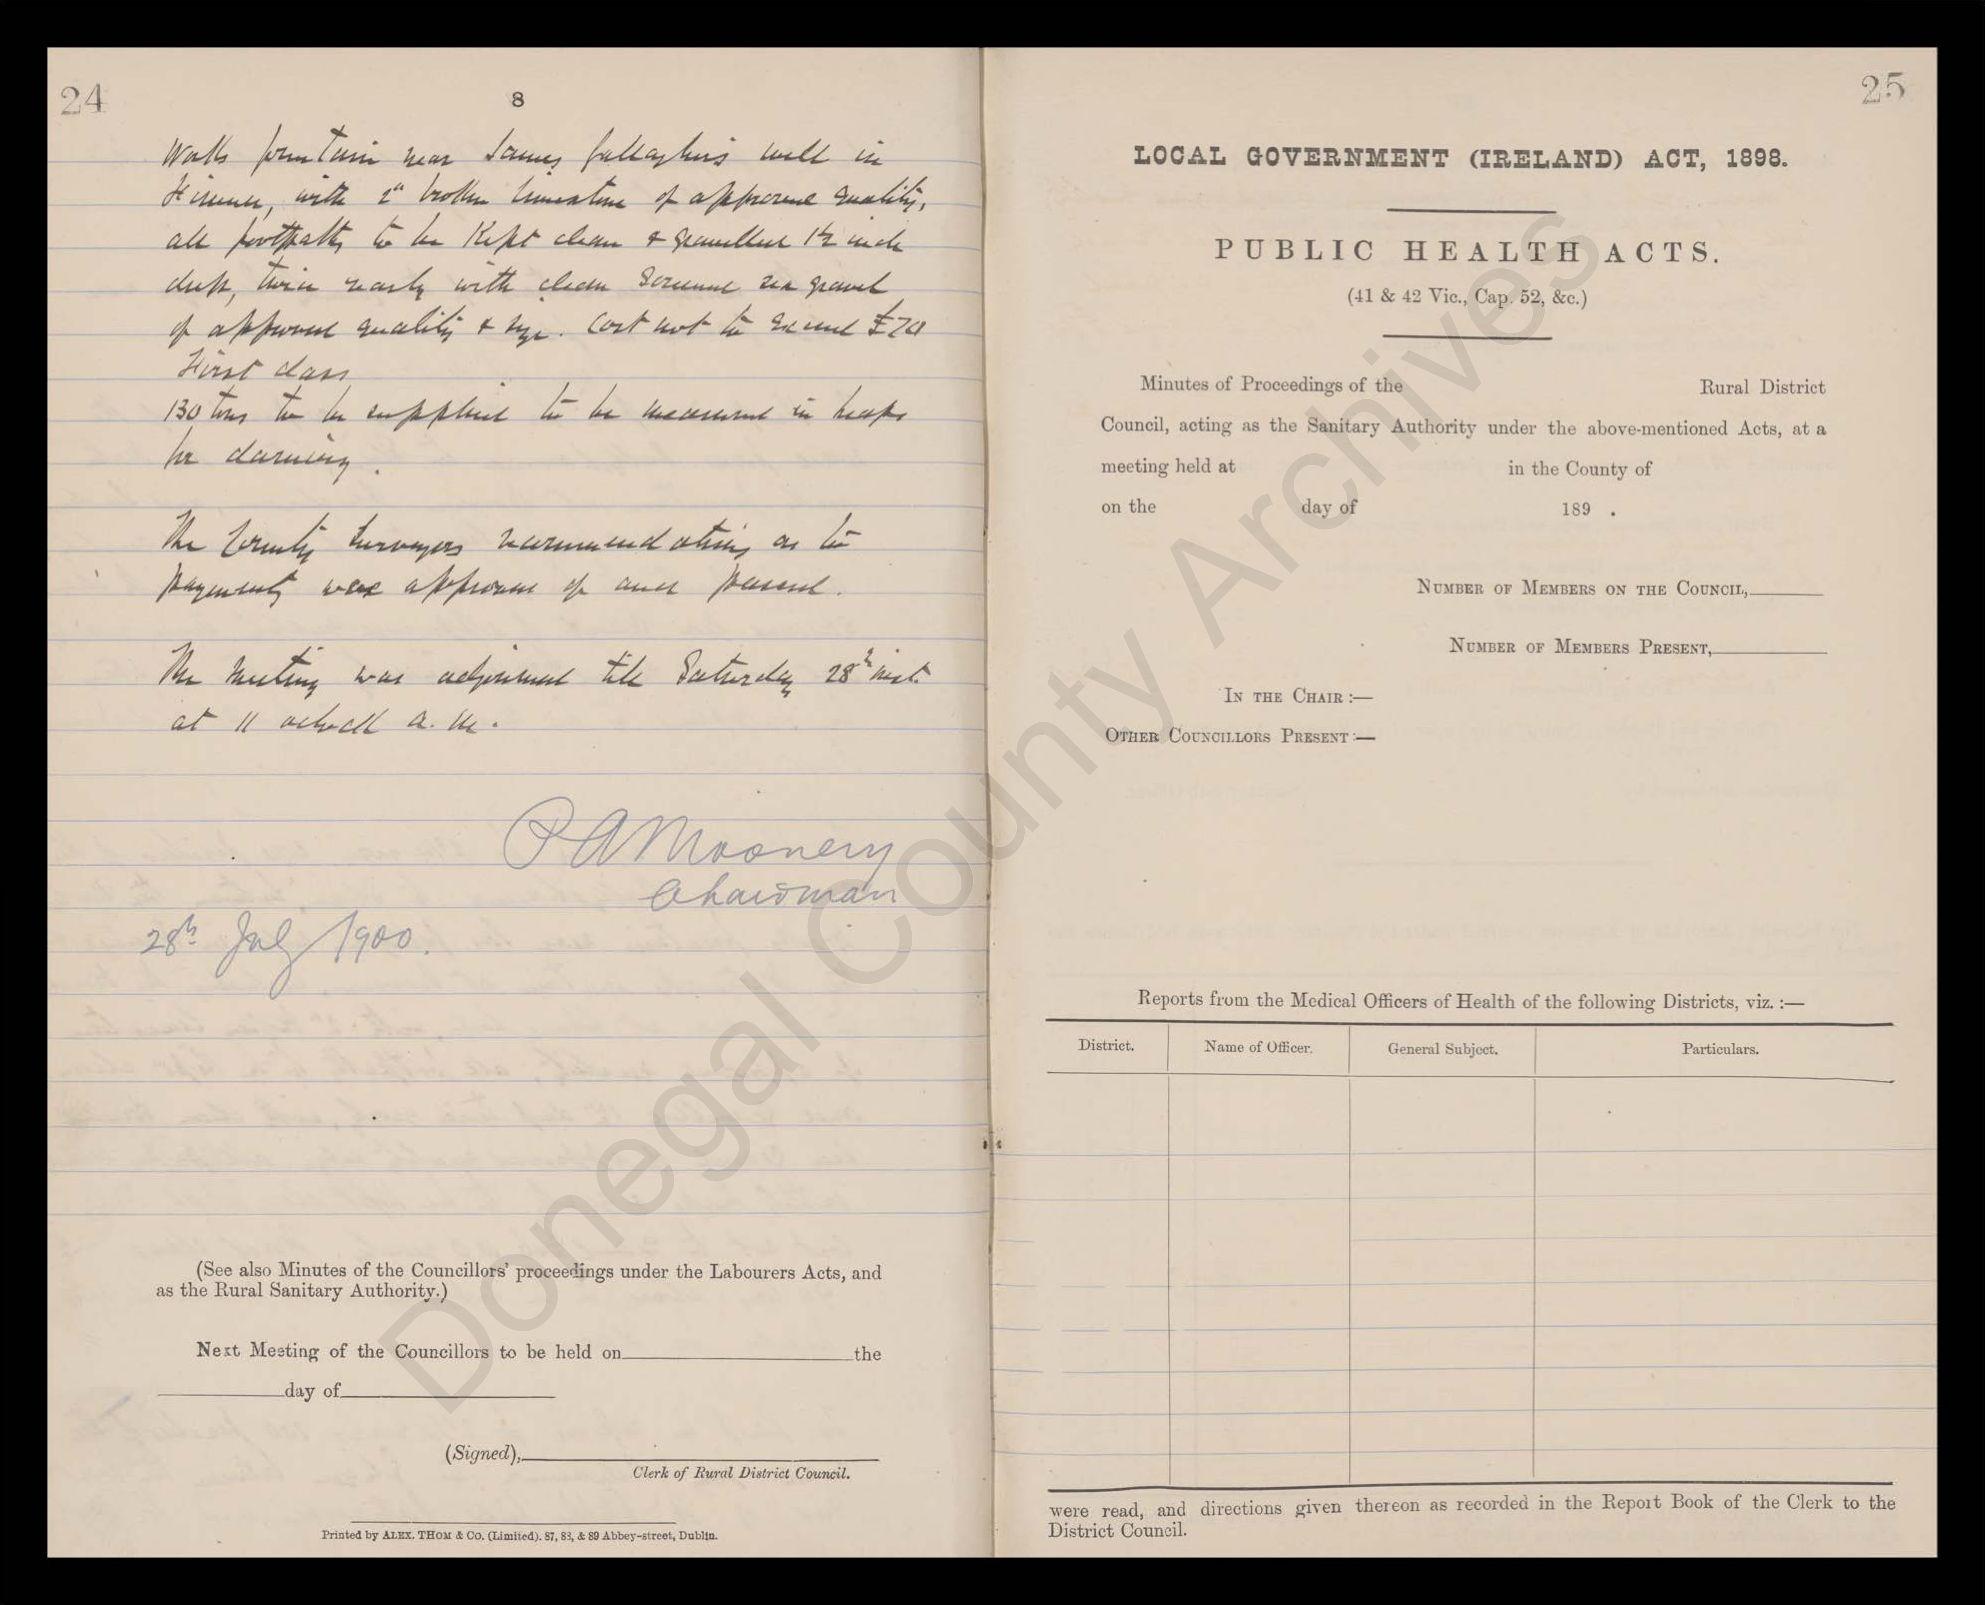 24
8
Works fountain near James Gallagher's well in
with 2" broken limestone of approved quality,
all footpaths to be kept clean & gravelled 1½ inch
deep, twice yearly with clean screened sea gravel
of approved quality & size. Cost not to exceed £70
First class
130 tons to be supplied to be measured in heaps
for darning.
The County Surveyors recommendations as to
payments were approved of and passed.
The meeting was adjourned till Saturday 28th inst.
at 11 oclock a.m.
P A Mooney
Chairman
28th July 1900.
(See also Minutes of the Councillors' proceedings under the Labourers Acts, and
as the Rural Sanitary Authority.)
Next Meeting of the Councillors to be held on the
day of
(Signed),
Clerk of Rural District Council.
Printed by ALEX. THOM & CO. (Limited). 87, 88, & 89 Abbey-street, Dublin.
25
LOCAL GOVERNMENT (IRELAND) ACT, 1898.
PUBLIC HEALTH ACTS.
(41 & 42 Vic., Cap. 52, &c.)
Minutes of Proceedings of the Rural District
Council, acting as the Sanitary Authority under the above-mentioned Acts, at a
meeting held at in the County of
on the day of 189 .
NUMBER OF MEMBERS ON THE COUNCIL,
NUMBER OF MEMBERS PRESENT,
IN THE CHAIR :—
OTHER COUNCILLORS PRESENT :—
Reports from the Medical Officers of Health of the following Districts, viz. :—
District. Name of Officer. General Subject. Particulars.
were read, and directions given thereon as recorded in the Report Book of the Clerk to the
District Council.
Donegal County Archives